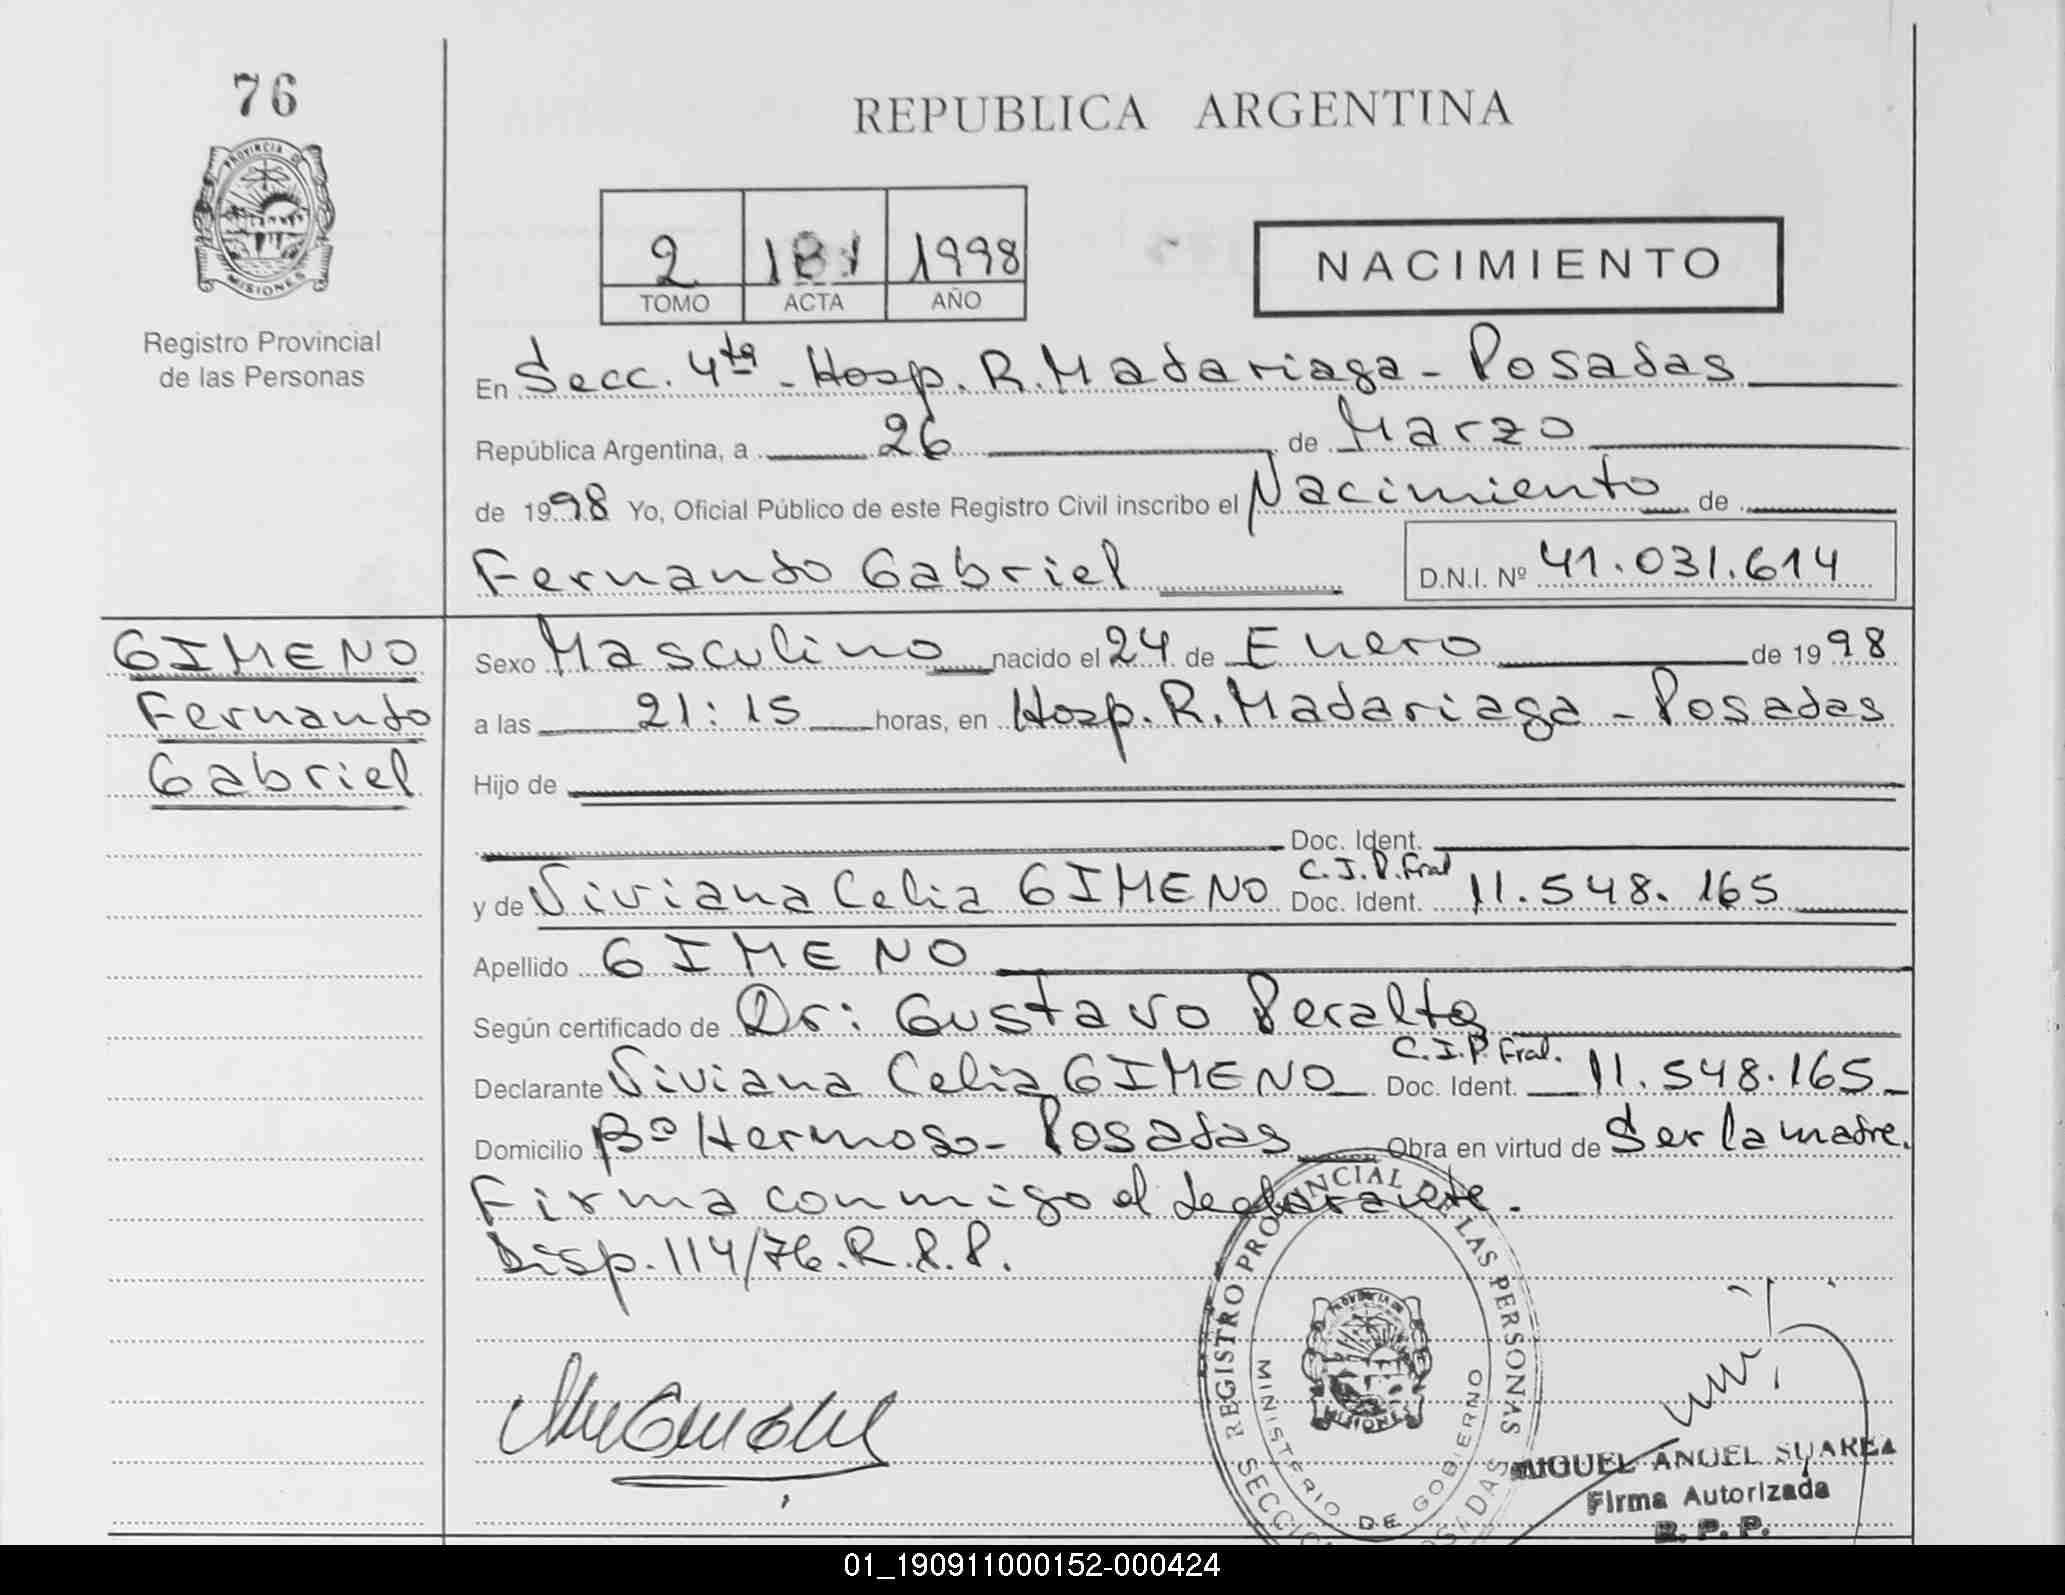 76
REPUBLICA ARGENTINA
PROVINCIA DE
MISIONES
Registro Provincial
de las Personas
2 1998
TOMO ACTA AÑO
NACIMIENTO
En Secc. 4ta - Hosp. R. Madariaga - Posadas
República Argentina, a 26 de Marzo
de 1998 Yo, Oficial Público de este Registro Civil inscribo el Nacimiento de
Fernando Gabriel D.N.I. Nº 41.031.614
GIMENO
Fernando
Gabriel
Sexo Masculino nacido el 24 de Enero de 1998
a las 21:15 horas, en Hosp. R. Madariaga - Posadas
Hijo de
Doc. Ident.
y de Viviana Celia GIMENO C.I.P.Fral Doc. Ident. 11.548.165
Apellido GIMENO
Según certificado de Dr: Gustavo Peralta
Declarante Viviana Celia GIMENO C.I.P. Fral. Doc. Ident. 11.548.165
Domicilio Bº Hermoso - Posadas Obra en virtud de Ser la madre.
Firma conmigo el declarante.
Disp. 114/76. R.P.P.
REGISTRO PROVINCIAL DE LAS PERSONAS
MINISTERIO DE GOBIERNO
PROVINCIA DE
MISIONES
MIGUEL ANGEL SUAREZ
Firma Autorizada
R. P. P.
01_190911000152-000424